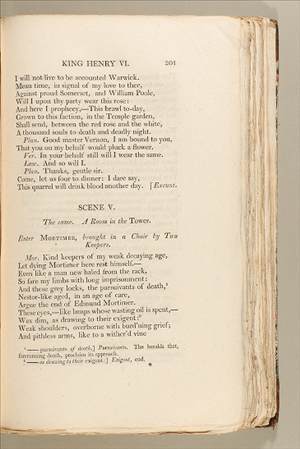 KING HENRY VI. 201
I will not live to be accounted Warwick.
Mean time, in signal of my love to thee,
Against proud Somerset, and William Poole,
Will I upon thy party wear this rose:
And here I prophecy,—This brawl to-day,
Grown to this faction, in the Temple garden,
Shall send, between the red rose and the white,
A thousand souls to death and deadly night.
Plan. Good master Vernon, I am bound to you,
That you on my behalf would pluck a flower.
Ver. In your behalf still will I wear the same.
Law. And so will I.
Plan. Thanks, gentle sir.
Come, let us four to dinner: I dare say,
This quarrel will drink blood another day. [Exeunt.
SCENE V.
The same. A Room in the Tower.
Enter MORTIMER, brought in a Chair by Two
Keepers.
Mor. Kind keepers of my weak decaying age,
Let dying Mortimer here rest himself.—
Even like a man new haled from the rack,
So fare my limbs with long imprisonment:
And these grey locks, the pursuivants of death,⁵
Nestor-like aged, in an age of care,
Argue the end of Edmund Mortimer.
These eyes,—like lamps whose wasting oil is spent,—
Wax dim, as drawing to their exigent:⁶
Weak shoulders, overborne with burd'ning grief;
And pithless arms, like to a wither'd vine
⁵ — pursuivants of death,] Pursuivants. The heralds that,
forerunning death, proclaim its approach.
⁶ — as drawing to their exigent:] Exigent, end.